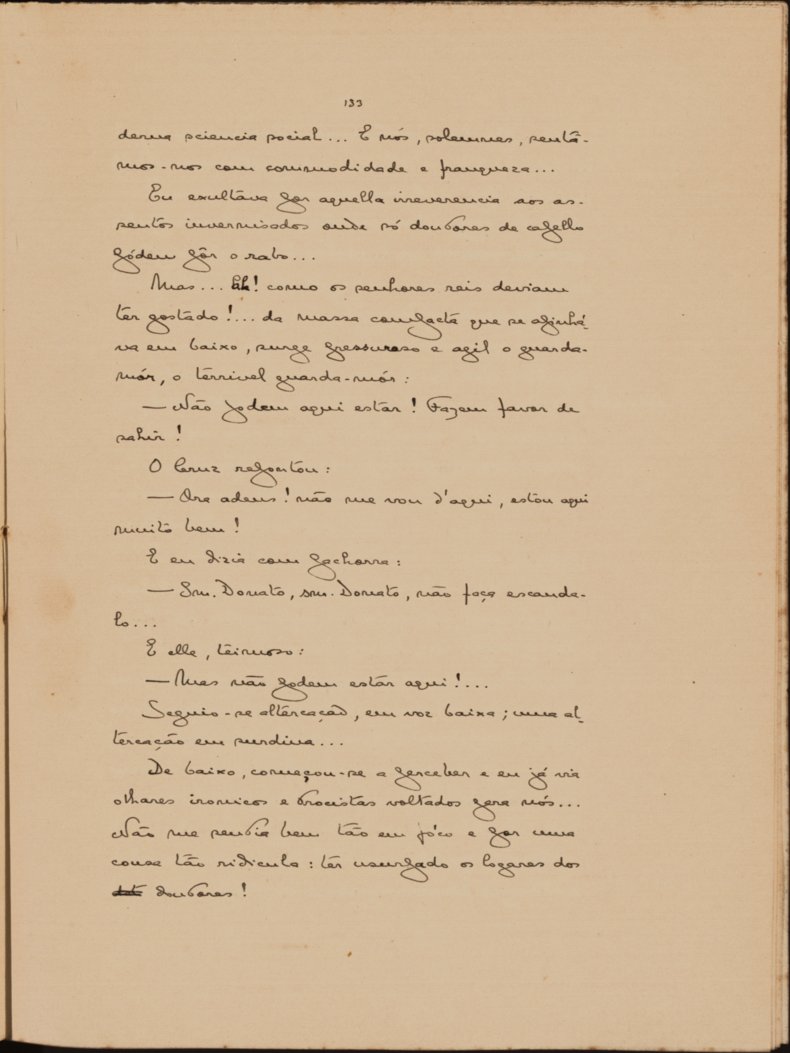 133
derna sciencia social... E nós, solemnes, sentá-
mos-nos com commodidade e franqueza...
Eu exultava por aquella irreverencia aos as-
sentos invernisados onde só doutores de capello
pódem pôr o rabo...
Mas... Ah! como os senhores reis deviam
ter gostado!... da massa compacta que se apinhá-
va em baixo, surge pressuroso e agil o guarda-
mór, o terrivel guarda-mór:
— Não podem aqui estar! Fazem favor de
sahir!
O Cruz refontou:
— Ora adeus! não me vou d'aqui, estou aqui
muito bem!
E eu dizia com pachorra:
— Snr. Donato, snr. Donato, não faça escanda-
lo...
E elle, teimoso:
— Mas não podem estar aqui!...
Seguio-se altercação, em voz baixa; uma al-
tercação em surdina...
De baixo, começou-se a perceber e eu já via
olhares ironicos e trocistas voltados pera nós...
Não me sentia bem tão em fóco e por uma
cousa tão ridicula: ter usurpado os logares dos
doutores!